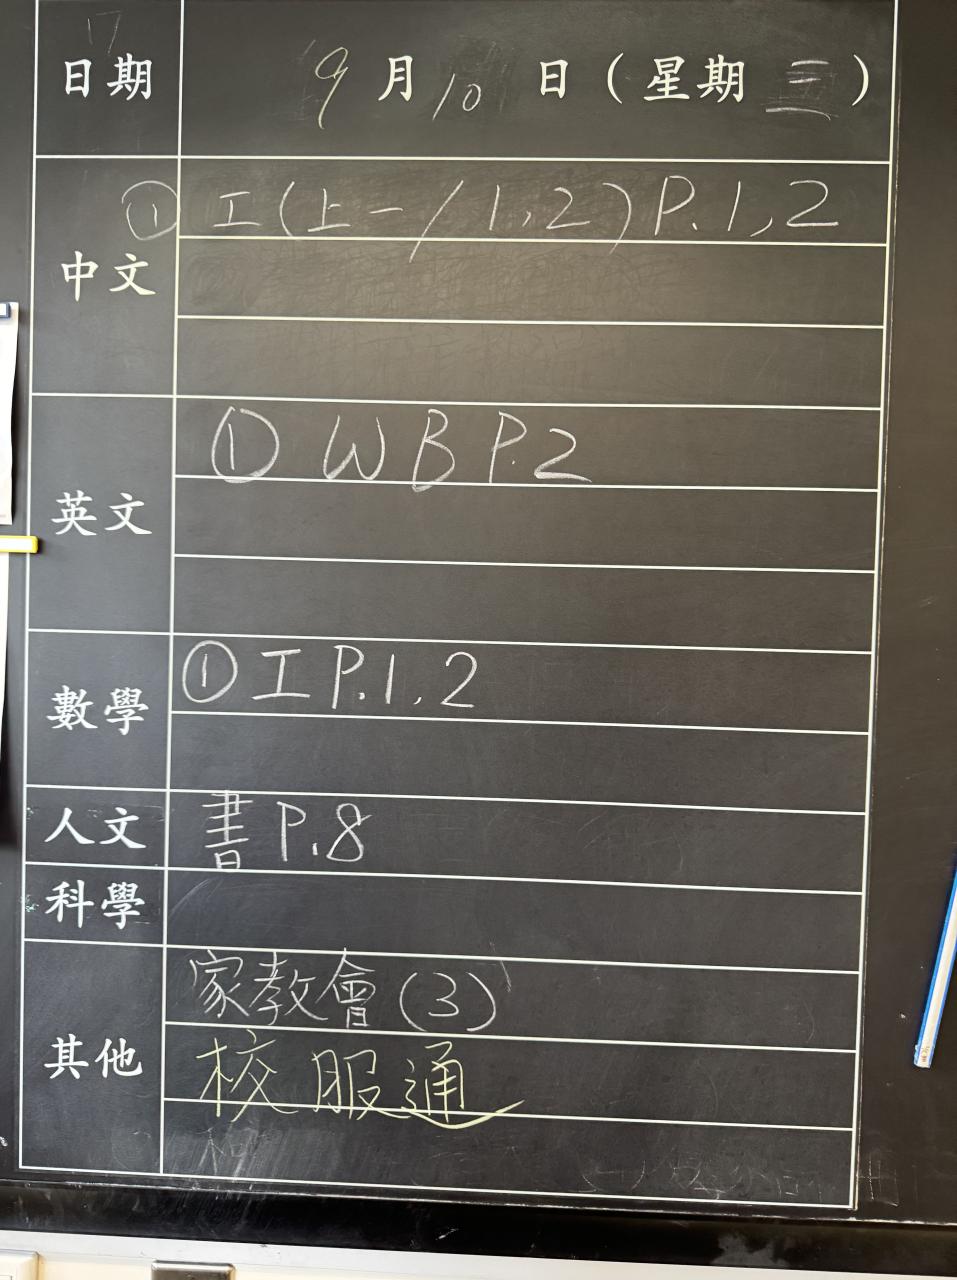 日期 9月10日(星期三)
中文 ① 工(上一/1,2) P.1,2
英文 ① WB P.2
數學 ① 工 P.1,2
人文 書 P.8
科學
其他 家教會(3)
校服通